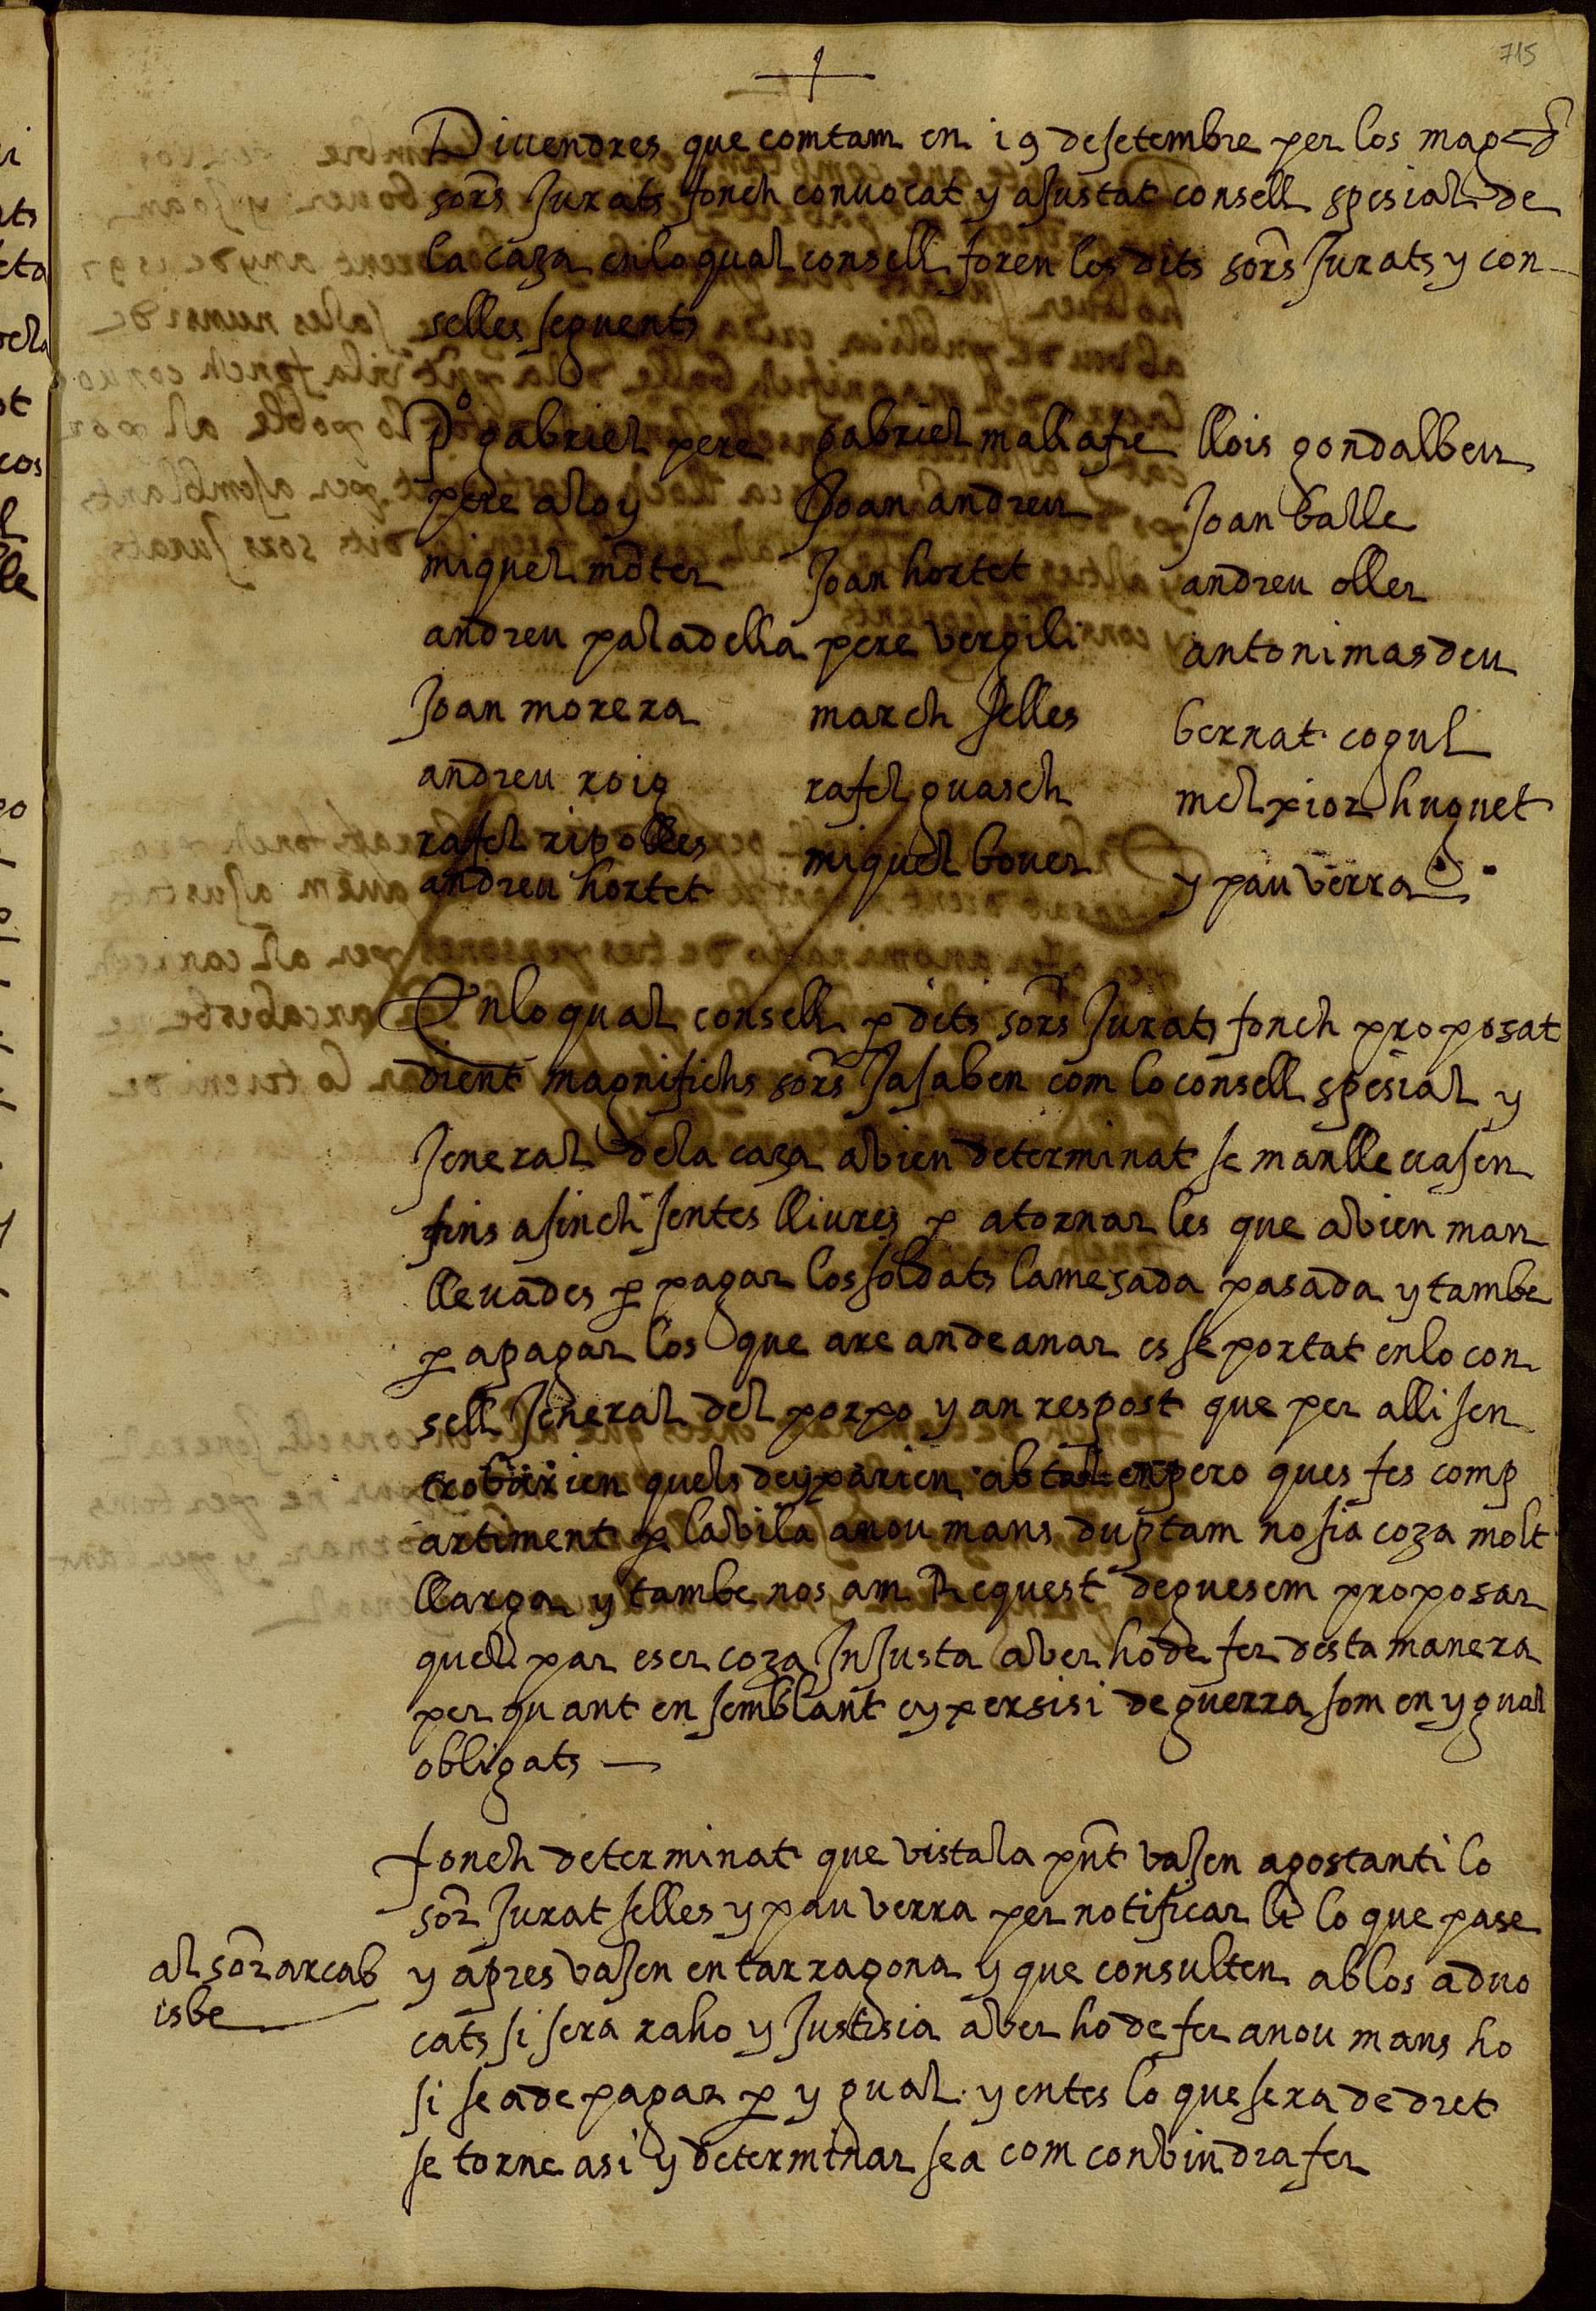 715
Divendres que comtam en 19 de setembre per los magchs
sors Jurats fonch convocat y ajustat consell spesial de
la caza en lo qual consell foren los dits sors Jurats y con-
selles seguents
Po gabriel pere gabriel mallafre llois gondalbeu
pere aloy Joan andreu Joan balle
miquel moter Joan hortet andreu oller
andreu paladella pere vergili antoni masdeu
Joan morera march selles bernat cogul
andreu roig rafel guasch melxior huguet
rafel ripolles miquel bover y pau verra
andreu hortet
En lo qual consell p dits sors Jurats fonch proposat
dient magnifichs sors Ja saben com lo consell spesial y
Jeneral de la caza abien determinat se manllevasen
fins a sinch sentes lliures p a tornar les que abien man
llevades p pagar los soldats la mesada pasada y tambe
p a pagar los que are an de anar es se portat en lo con
sell Jeneral del porxo y an respost que per alli sen
trobarien quels deyxarien ab tal enpero ques fes comp
artiment p la vila a nou mans duptam no sia coza molt
llarga y tambe nos am Request deguesem proposar
quel par eser coza InJusta aber ho de fer desta manera
per quant en semblant eyxersisi de guerra som en ygual
obligats
fonch determinat que vista la pnt vasen a gostanti lo
sor Jurat selles y pau verra per notificar li lo que pase
al sor arcab
isbe
y apres vasen en tarragona y que consulten ab los advo
cats si sera raho y Justisia aber ho de fer a nou mans ho
si se a de pagar p ygual y entes lo que sera de dret
se torne asi y determinar se a com conbindra fer